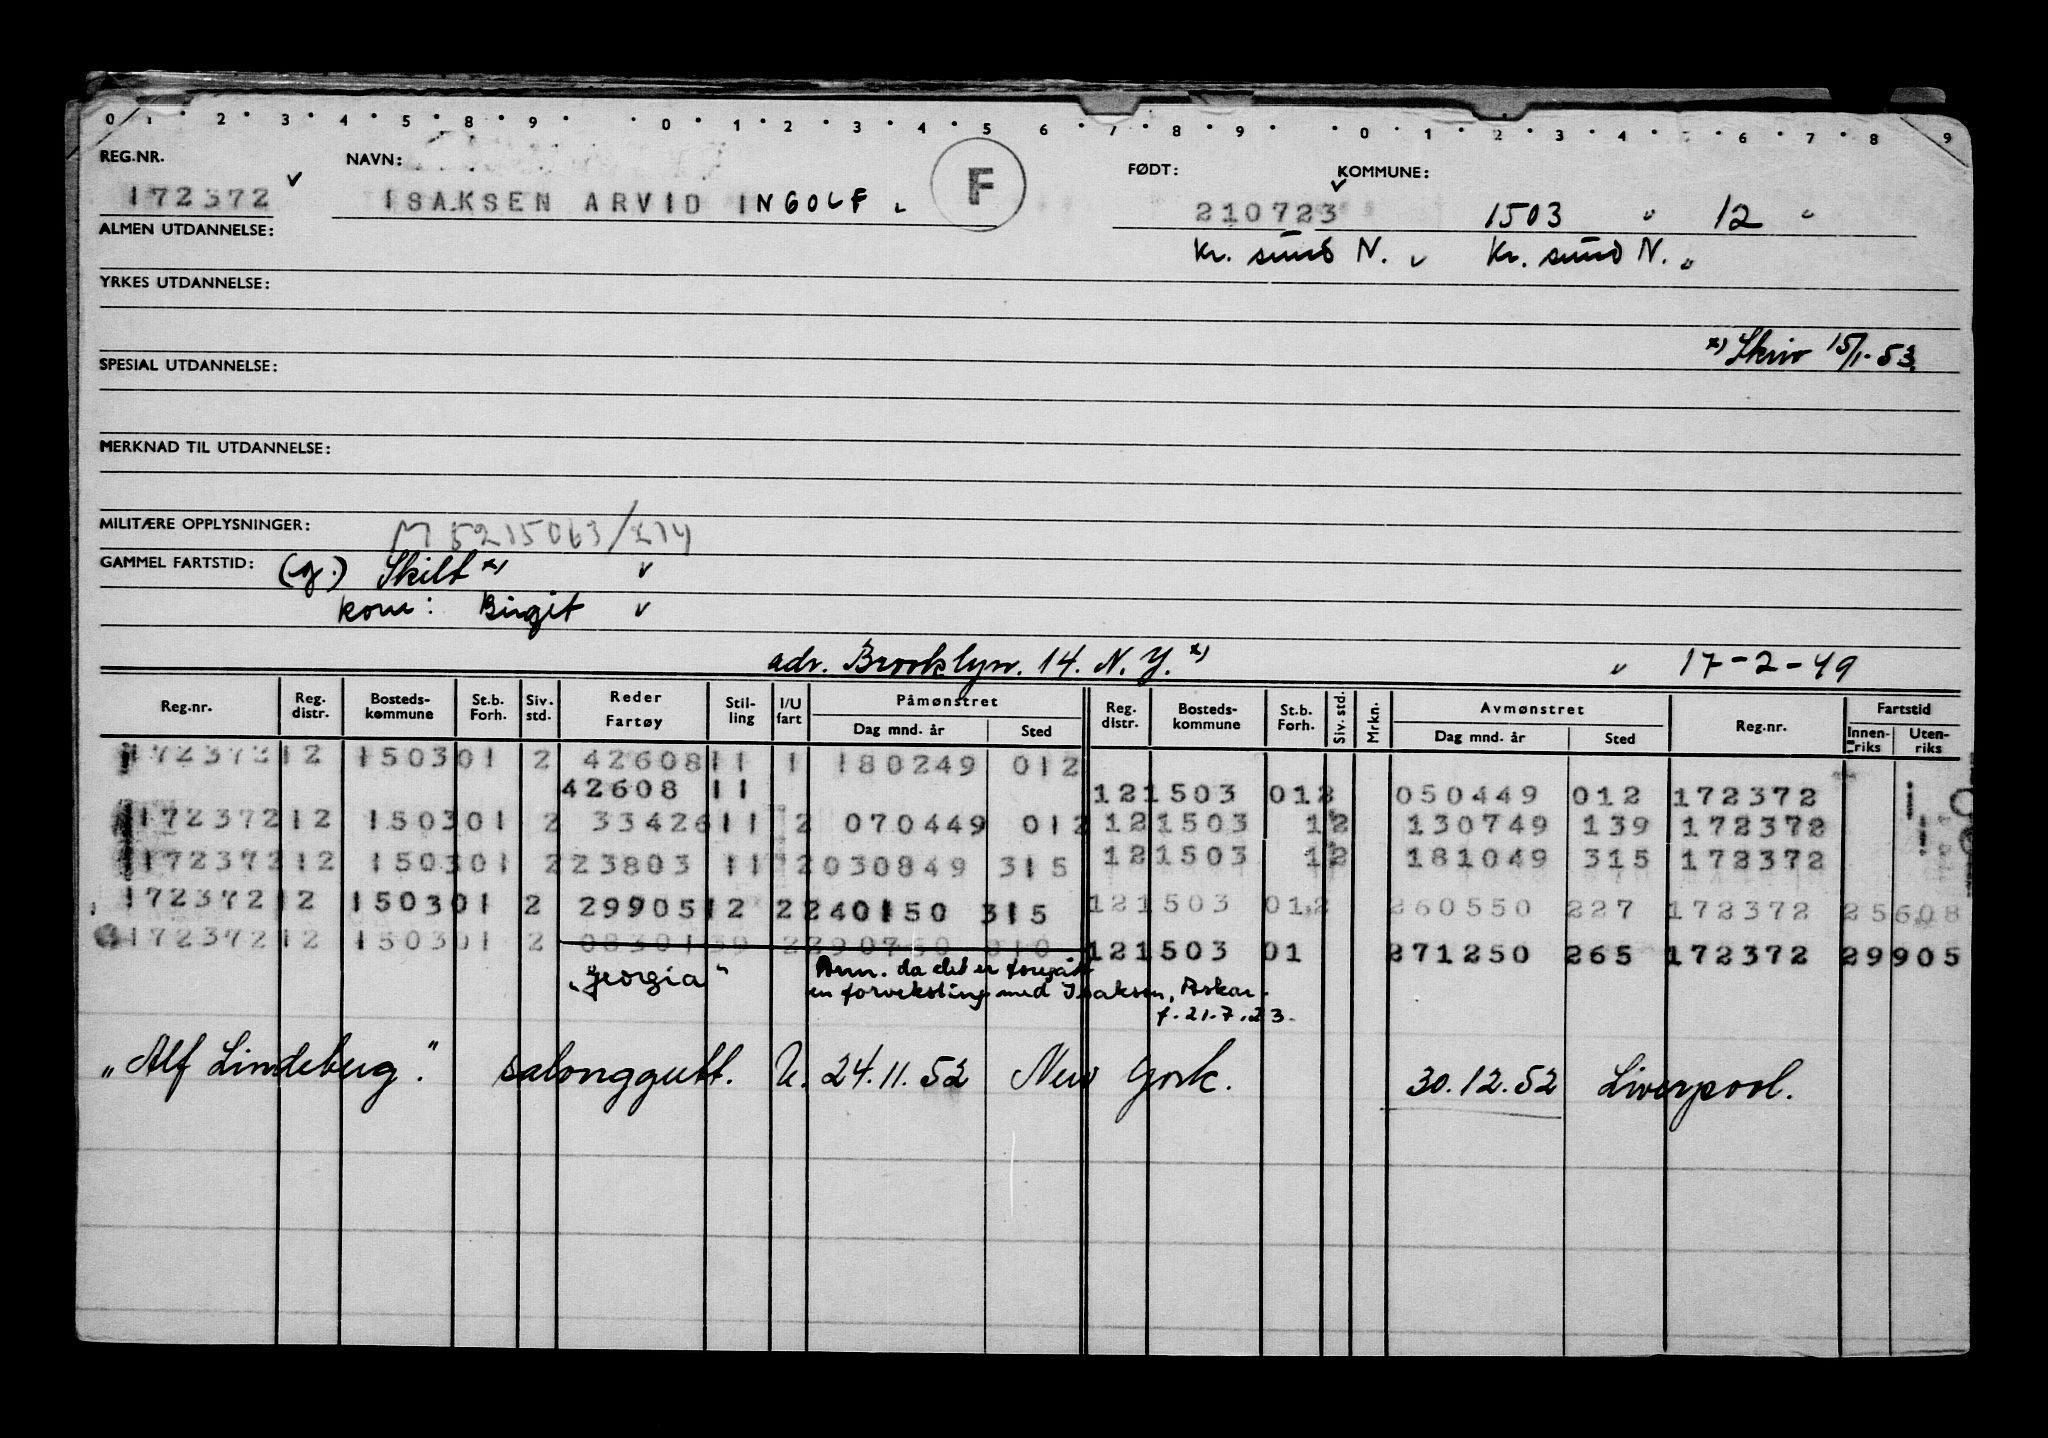 0 1 2 3 4 5 8 9 0 1 2 3 4 5 6 7 8 9 0 1 2 3 4 5 6 7 8 9
REG.NR. NAVN: F FØDT: KOMMUNE:
172372 ISAKSEN ARVID INGOLF 210723 1503 12
ALMEN UTDANNELSE: Kr. sund N. Kr. sund N.
YRKES UTDANNELSE:
x) Skriv 15/1-53
SPESIAL UTDANNELSE:
MERKNAD TIL UTDANNELSE:
MILITÆRE OPPLYSNINGER: M 5215063/£14
GAMMEL FARTSTID: Skilt x)
kone: Birgit
adr. Brooklyn. 14. N.Y. x) 17-2-49
Reg.nr. Reg. distr. Bosteds-kommune St.b. Forh. Siv. std. Reder Fartøy Stil-ling I/U fart Påmønstret Dag mnd. år Sted Reg. distr. Bosteds-kommune St.b. Forh. Siv. std. Mrkn. Avmønstret Dag mnd. år Sted Reg.nr. Fartstid Innen-riks Uten-riks
172372 12 1503 01 2 42608 11 1 180249 012
42608 11 12 1503 01 2 050449 012 172372
172372 12 1503 01 2 33426 11 2 070449 012 12 1503 1 2 130749 139 172372
172372 12 1503 01 2 23803 11 2 030849 315 12 1503 1 2 181049 315 172372
172372 12 1503 01 2 29905 12 2 240150 315 12 1503 01 2 260550 227 172372 25608
172372 12 1503 01 2 08301 59 2 290750 010 12 1503 01 271250 265 172372 29905
"Georgia" Ann. da det er foregått
en forveksling med Isaksen, Askar.
f. 21.7.23.
"Alf Lindeberg." salonggutt. U. 24.11.52 New York. 30.12.52 Liverpool.